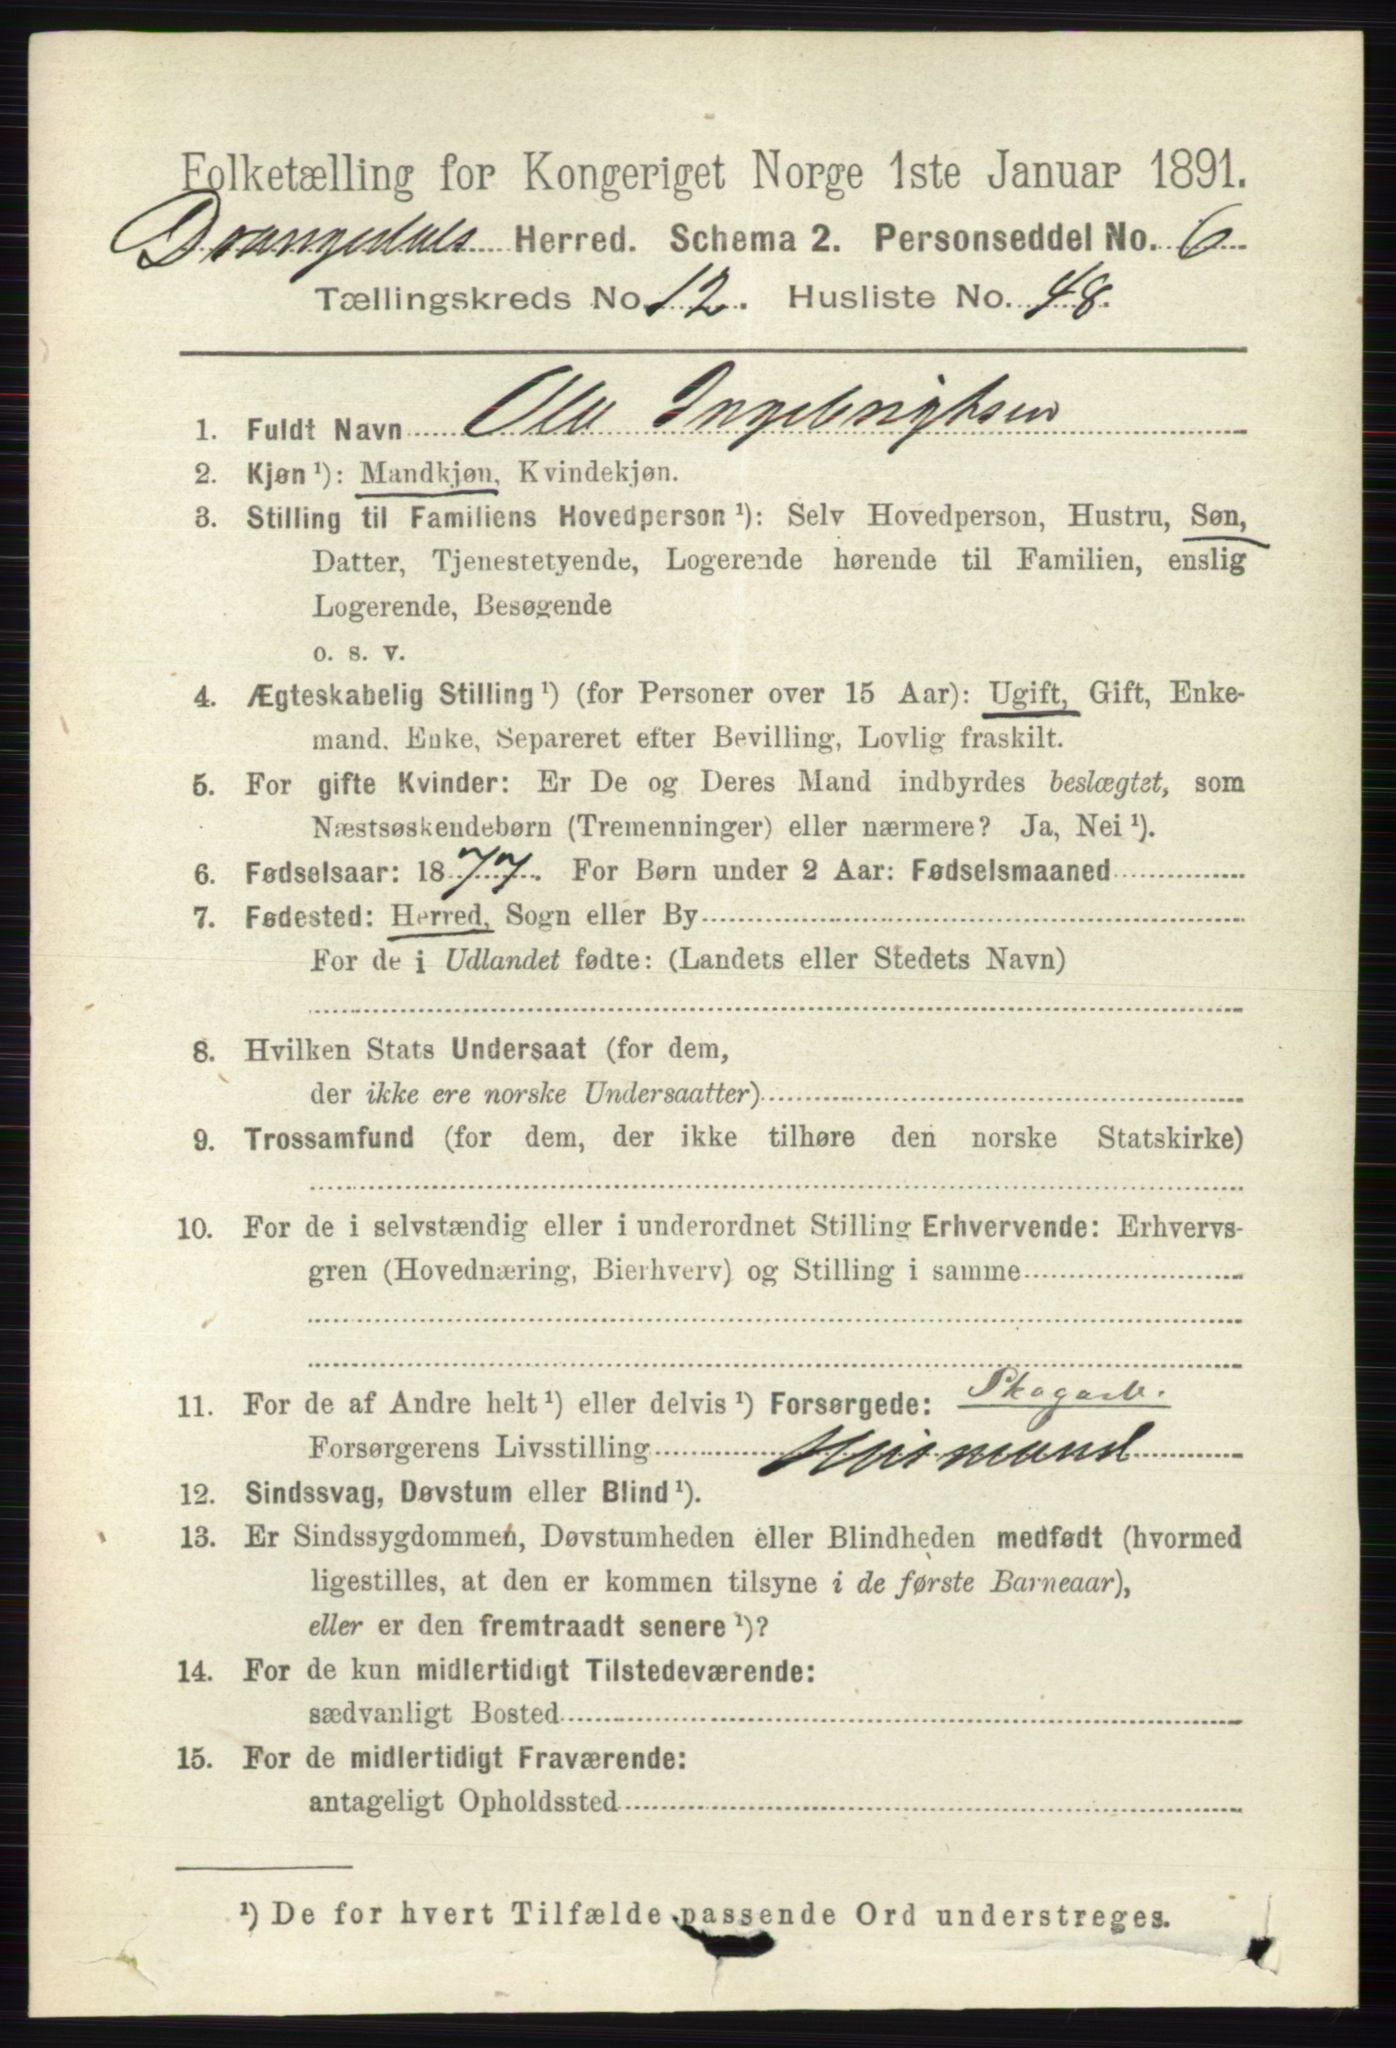 Folketælling for Kongeriget Norge 1ste Januar 1891.
Drangedals Herred. Schema 2. Personseddel No. 6
Tællingskreds No. 12. Husliste No. 48.
1. Fuldt Navn Ole Ingebrigtsen
2. Kjøn ¹): Mandkjøn, Kvindekjøn.
3. Stilling til Familiens Hovedperson ¹): Selv Hovedperson, Hustru, Søn,
Datter, Tjenestetyende, Logerende hørende til Familien, enslig
Logerende, Besøgende
o. s. v.
4. Ægteskabelig Stilling ¹) (for Personer over 15 Aar): Ugift, Gift, Enke-
mand, Enke, Separeret efter Bevilling, Lovlig fraskilt.
5. For gifte Kvinder: Er De og Deres Mand indbyrdes beslægtet, som
Næstsøskendebørn (Tremenninger) eller nærmere? Ja, Nei ¹).
6. Fødselsaar: 1877. For Børn under 2 Aar: Fødselsmaaned
7. Fødested: Herred, Sogn eller By
For de i Udlandet fødte: (Landets eller Stedets Navn)
8. Hvilken Stats Undersaat (for dem,
der ikke ere norske Undersaatter)
9. Trossamfund (for dem, der ikke tilhøre den norske Statskirke)
10. For de i selvstændig eller i underordnet Stilling Erhvervende: Erhvervs-
gren (Hovednæring, Bierhverv) og Stilling i samme
11. For de af Andre helt ¹) eller delvis ¹) Forsørgede: Skogarb.
Forsørgerens Livsstilling Husmand
12. Sindssvag, Døvstum eller Blind ¹).
13. Er Sindssygdommen, Døvstumheden eller Blindheden medfødt (hvormed
ligestilles, at den er kommen tilsyne i de første Barneaar),
eller er den fremtraadt senere ¹)?
14. For de kun midlertidigt Tilstedeværende:
sædvanligt Bosted
15. For de midlertidigt Fraværende:
antageligt Opholdssted
¹) De for hvert Tilfælde passende Ord understreges.